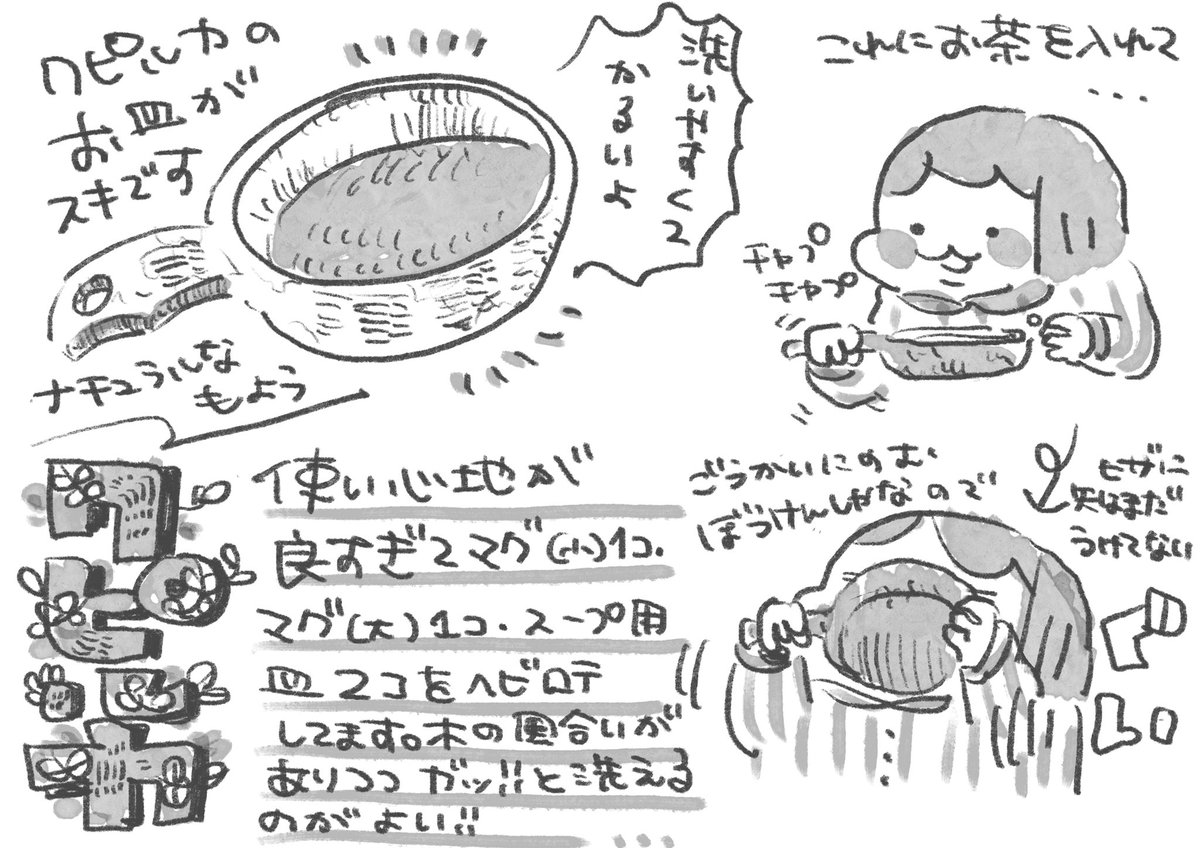 クピルカの
お皿が
スキです
洗いやすくて
かるいよ
ナチュラルな
もよう
これにお茶を入れて
...
チャプ
チャプ
使い心地が
良すぎてマグ(小)1コ・
マグ(大)1コ・スープ用
皿2コをヘビロテ
してます。木の風合いが
ありつつガッ!!と洗える
のがよい!!
...
ごうかいにのむ
ぼうけんしゃなので
ヒザに
矢はまだ
うけてない